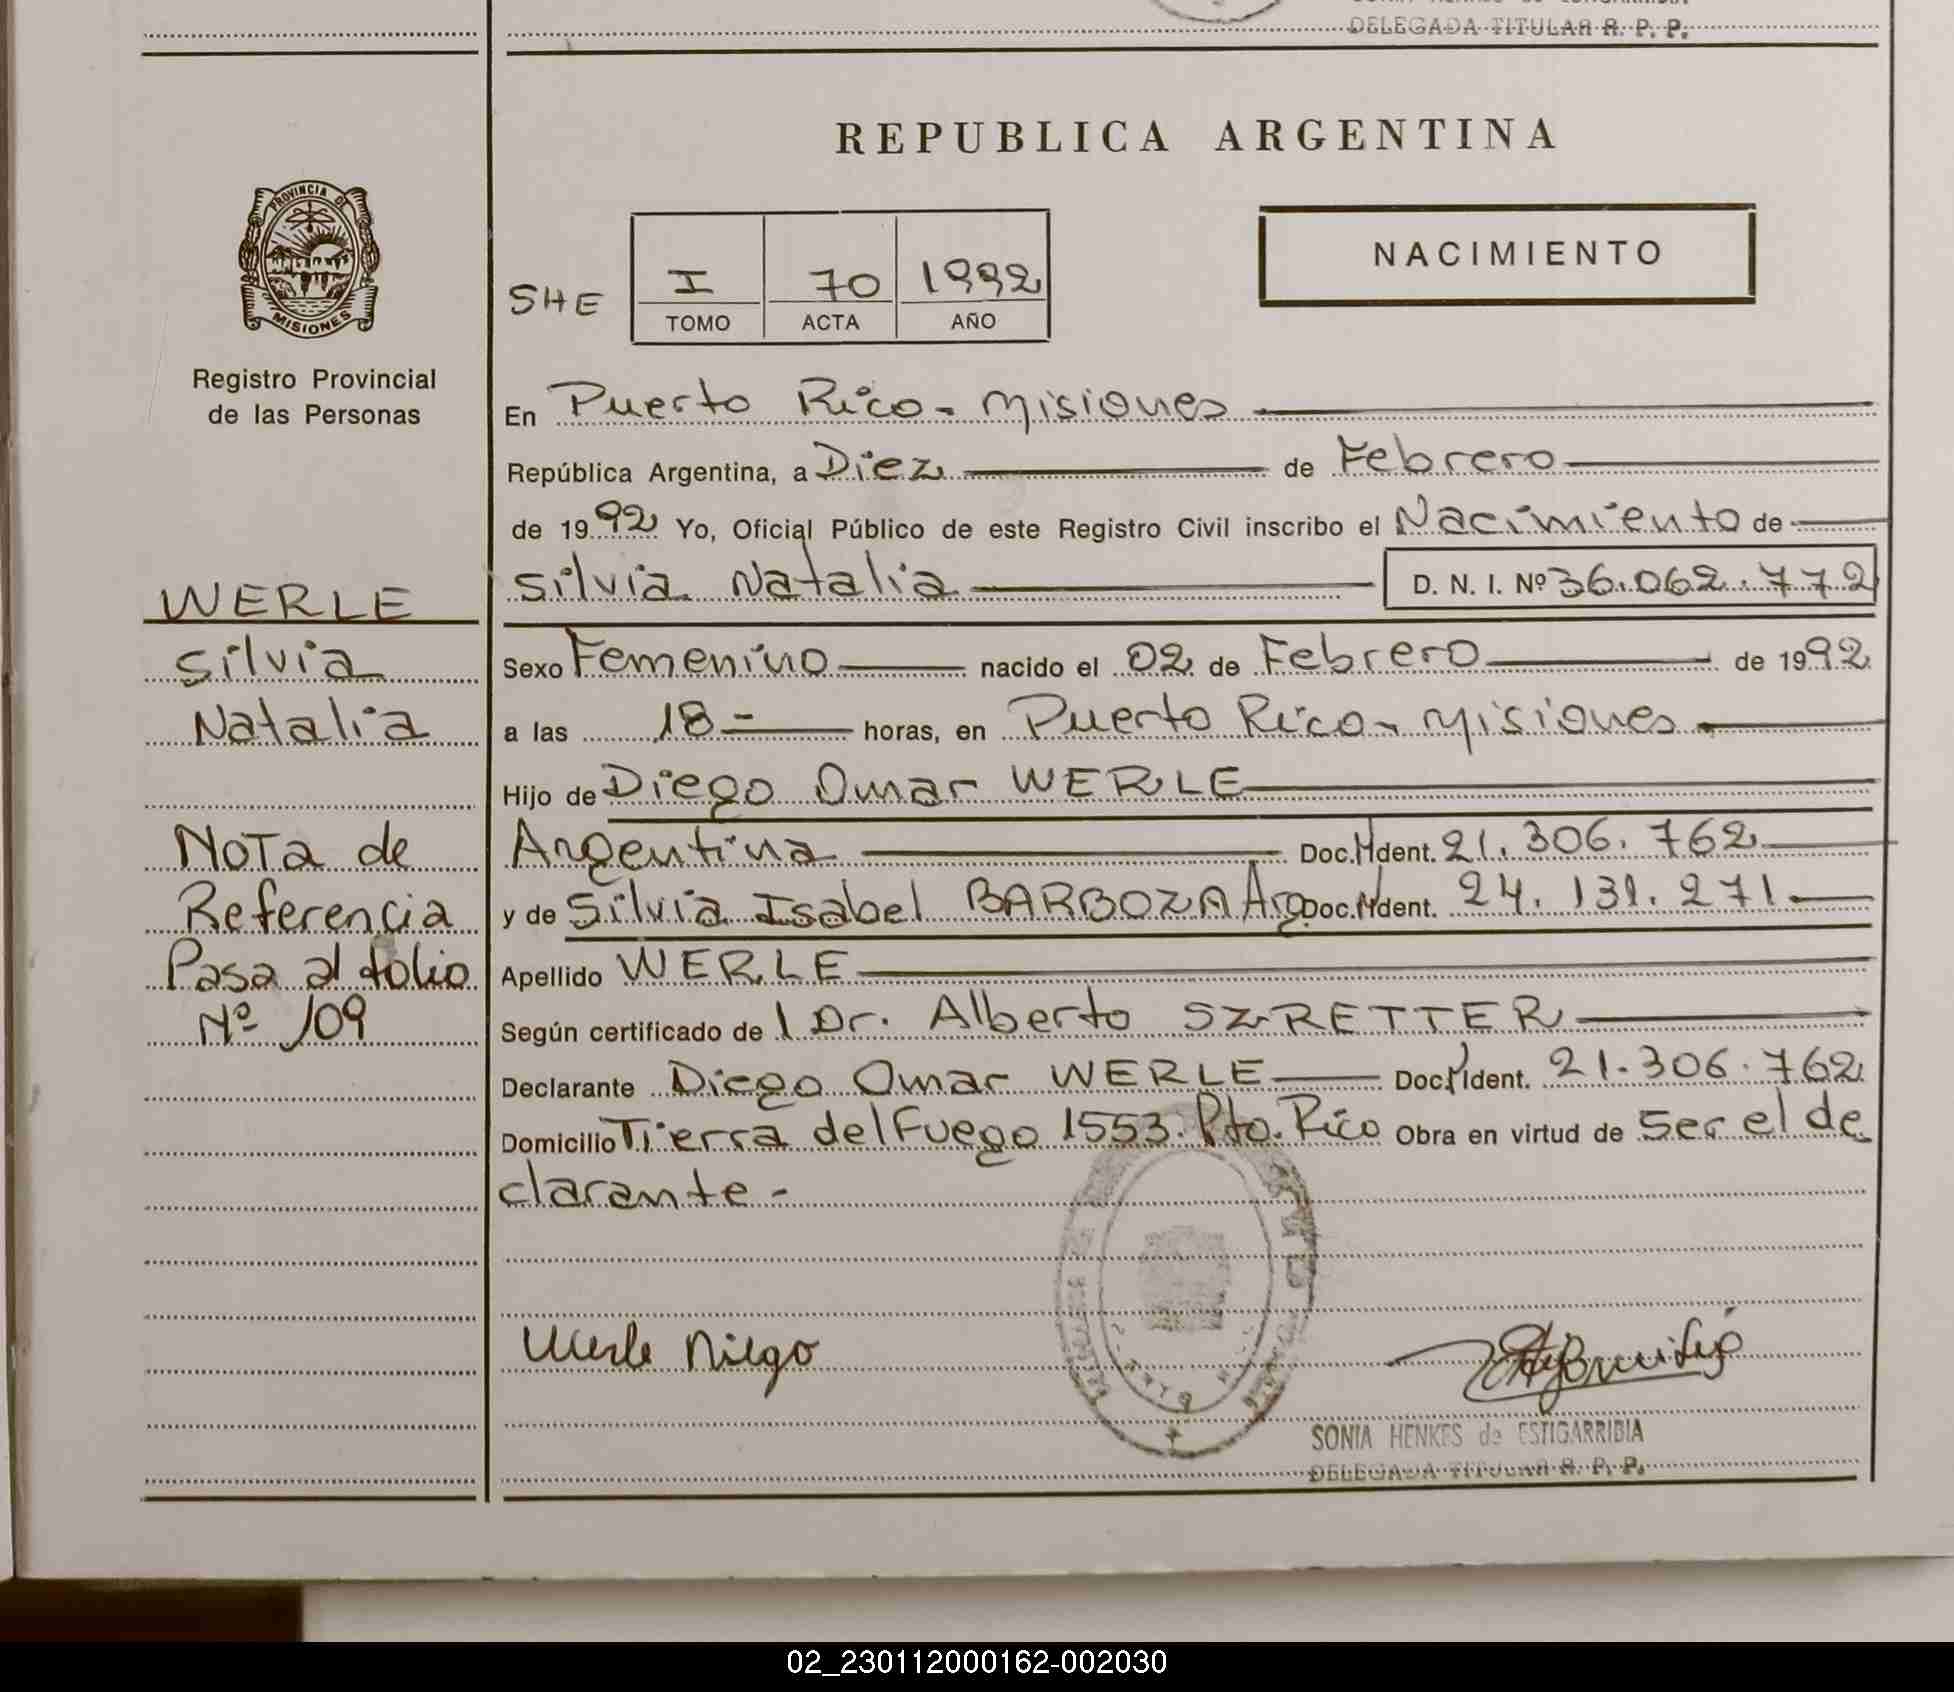 DELEGADA TITULAR R. P. P.
REPUBLICA ARGENTINA
PROVINCIA DE
MISIONES
Registro Provincial
de las Personas
SHE
I 70 1992
TOMO ACTA AÑO
NACIMIENTO
En Puerto Rico - Misiones
República Argentina, a Diez de Febrero
de 1992 Yo, Oficial Público de este Registro Civil inscribo el Nacimiento de
Silvia Natalia D. N. I. Nº 36.062.772
Sexo Femenino nacido el 02 de Febrero de 1992
a las 18 - horas, en Puerto Rico - Misiones
Hijo de Diego Omar WERLE
Argentina Doc. Ident. 21.306.762
y de Silvia Isabel BARBOZA Arg Doc. Ident. 24.131.271
Apellido WERLE
Según certificado de l Dr. Alberto SZRETTER
Declarante Diego Omar WERLE Doc. Ident. 21.306.762
Domicilio Tierra del Fuego 1553. Pto. Rico Obra en virtud de ser el de
clarante -
WERLE
Silvia
Natalia
Nota de
Referencia
Pasa al folio
Nº 109
Werle Diego
SONIA HENKES de ESTIGARRIBIA
DELEGADA TITULAR R. P. P.
02_230112000162-002030